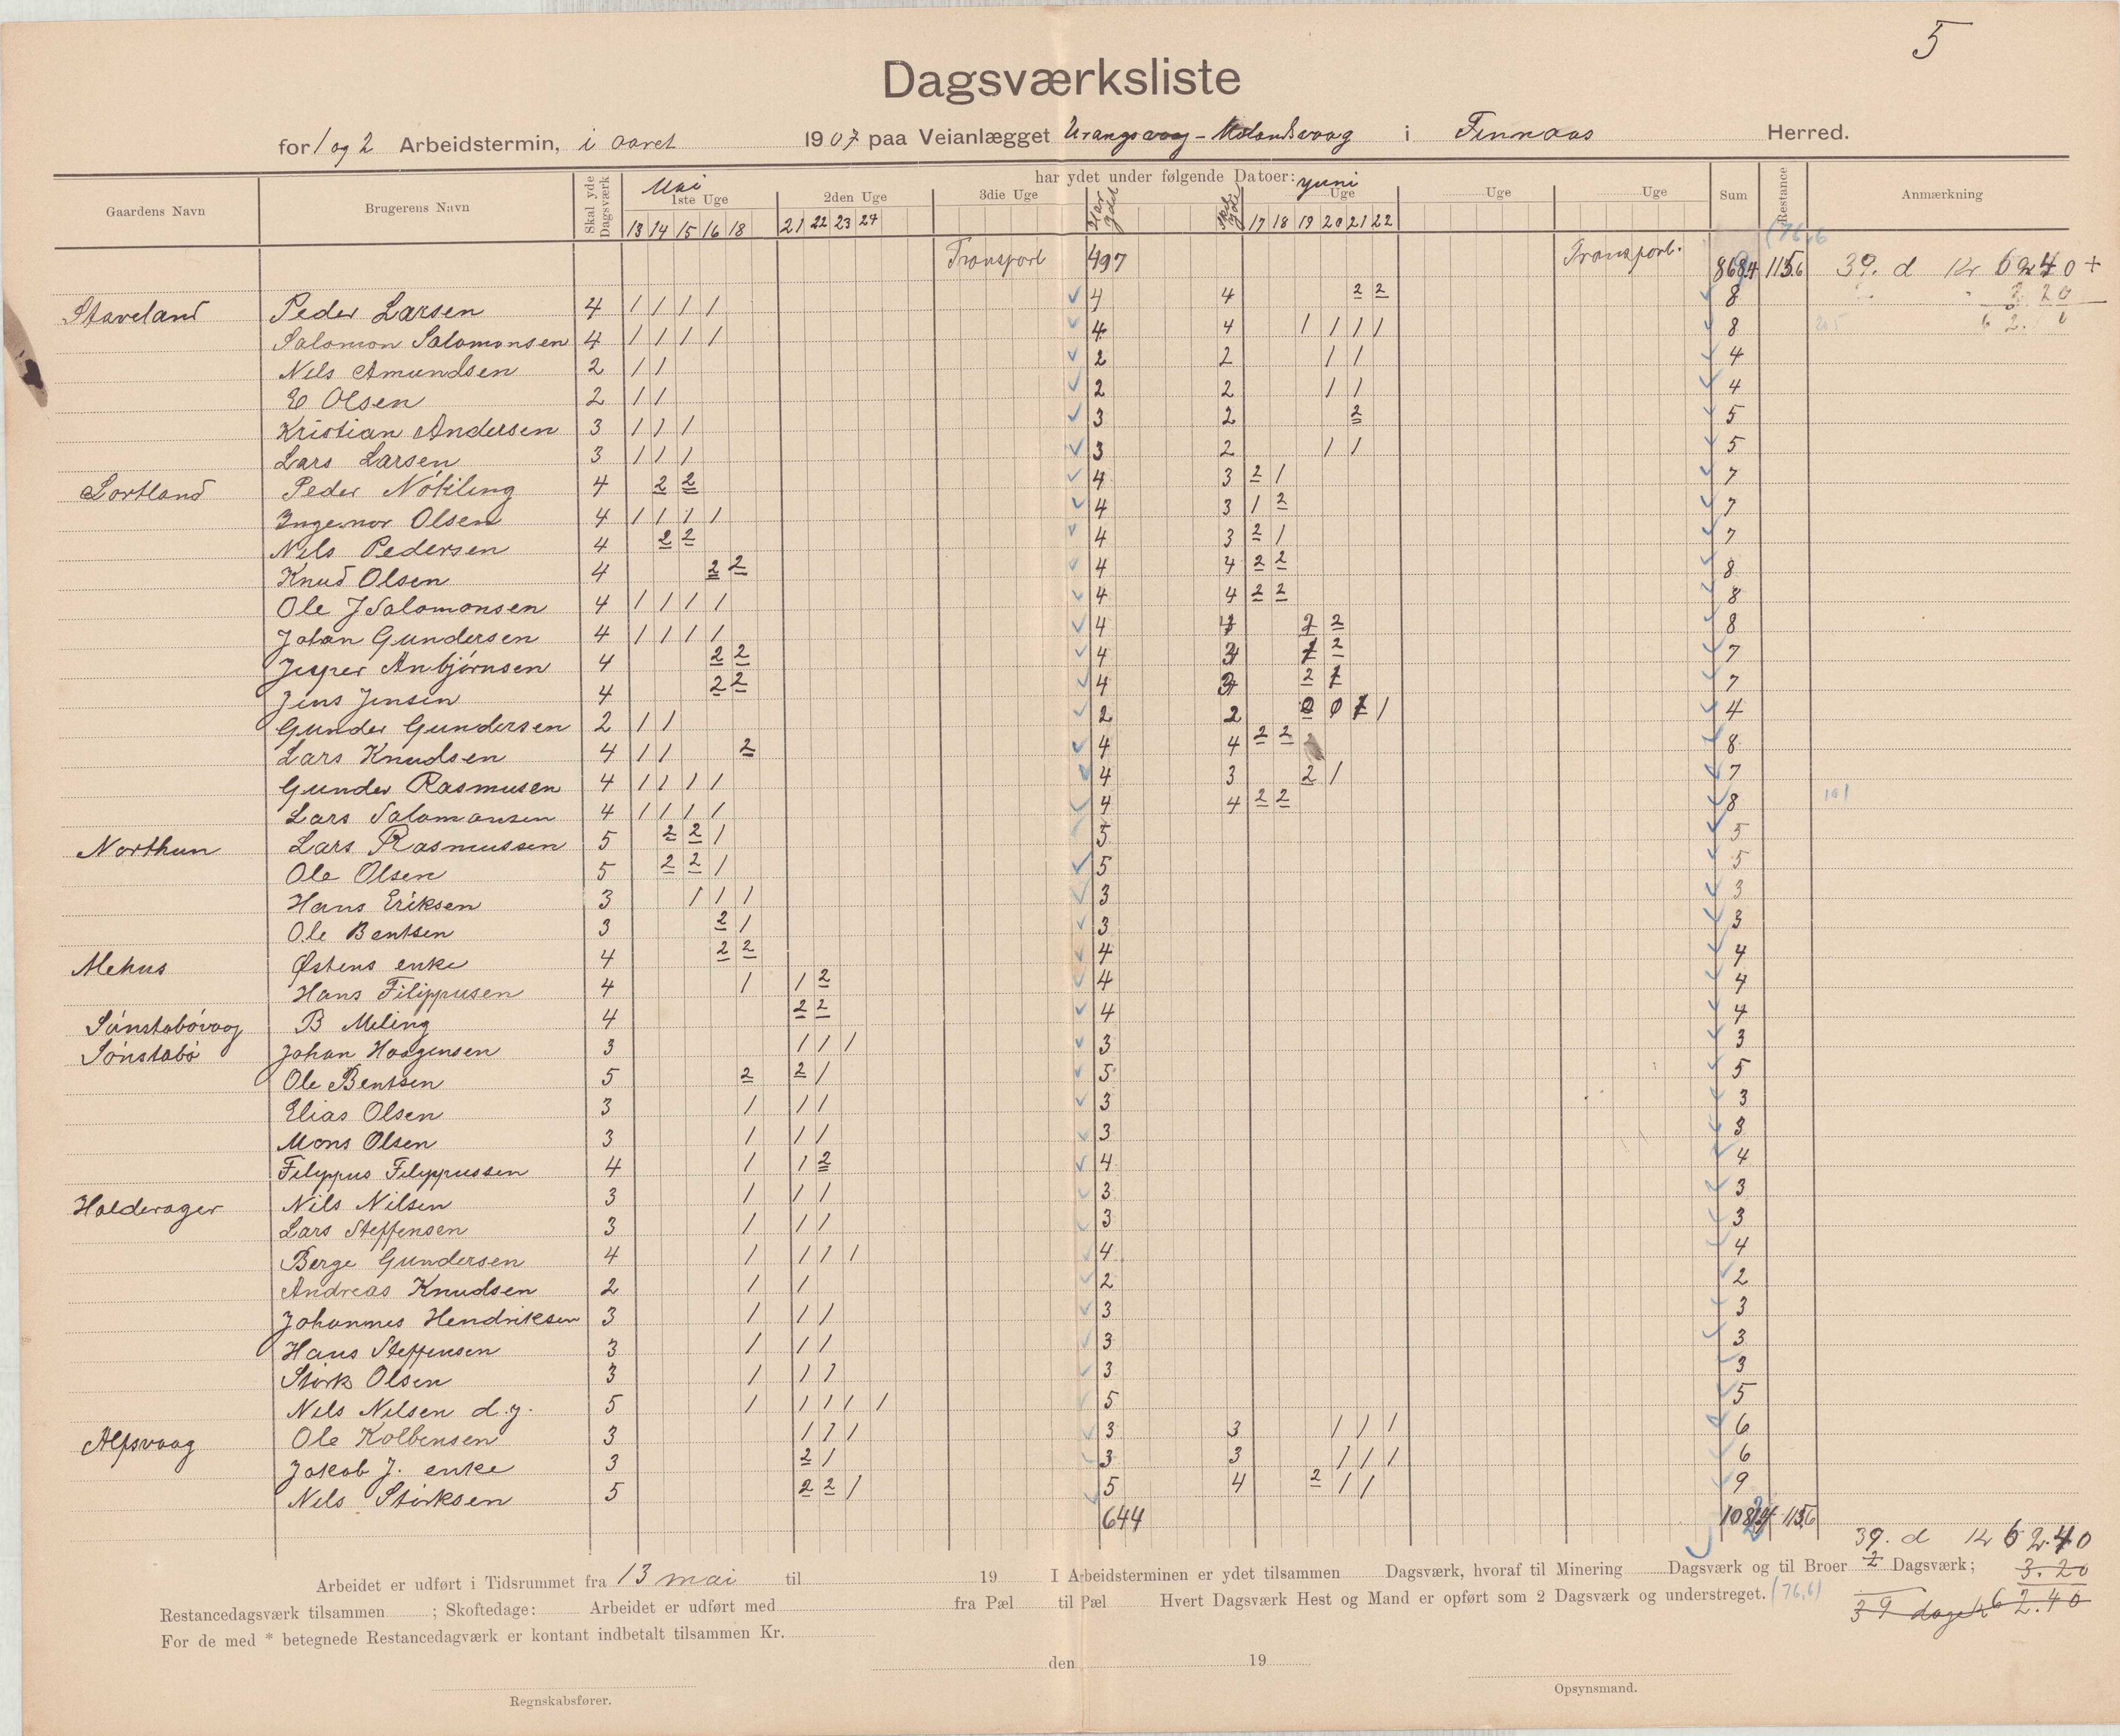 5
Dagsværksliste
for 1 og 2 Arbeidstermin, i aaret 1907 paa Veianlægget Urangsvaag - Mølandsvaag i Finnaas Herred.
Gaardens Navn Brugerens Navn Skal yde Dagsværk har ydet under følgende Datoer: Sum Restance Anmærkning
Mai 1ste Uge 2den Uge 3die Uge Har ydet Skal yde Juni Uge Uge Uge
13 14 15 16 18 21 22 23 24 17 18 19 20 21 22
Transport 497 Transport 115,6 39. d Kr 62 40 +
Staveland Peder Larsen 4 1 1 1 1 4 4 2 2 8 3 20
Salomon Salomonsen 4 1 1 1 1 4 4 1 1 1 1 8
Nils Amundsen 2 1 1 2 2 1 1 4
E Olsen 2 1 1 2 2 1 1 4
Kristian Andersen 3 1 1 1 3 2 2 5
Lars Larsen 3 1 1 1 3 2 1 1 5
Sortland Peder Nökling 4 2 2 4 3 2 1 7
Ingemor Olsen 4 1 1 1 1 4 3 1 2 7
Nils Pedersen 4 2 2 4 3 2 1 7
Knud Olsen 4 2 2 4 4 2 2 8
Ole J Salomonsen 4 1 1 1 1 4 4 2 2 8
Johan Gundersen 4 1 1 1 1 4 4 2 2 8
Jesper Anbjörnsen 4 2 2 4 3 1 2 7
Jens Jensen 4 2 2 4 3 2 1 7
Gunder Gundersen 2 1 1 2 2 0 0 1 1 4
Lars Knudsen 4 1 1 2 4 4 2 2 8
Gunder Rasmusen 4 1 1 1 1 4 3 2 1 7
Lars Salomonsen 4 1 1 1 1 4 4 2 2 8 101
Northun Lars Rasmussen 5 2 2 1 5 5
Ole Olsen 5 2 2 1 5 5
Hans Eriksen 3 1 1 1 3 3
Ole Bentsen 3 2 1 3 3
Mehus Østens enke 4 2 2 4 4
Hans Filippusen 4 1 1 2 4 4
Sönstabövaag B Meling 4 2 2 4 4
Sönstabö Johan Haagensen 3 1 1 1 3 3
Ole Bentsen 5 2 2 1 5 5
Elias Olsen 3 1 1 1 3 3
Mons Olsen 3 1 1 1 3 3
Filippus Filippussen 4 1 1 2 4 4
Halderager Nils Nilsen 3 1 1 1 3 3
Lars Steffensen 3 1 1 1 3 3
Berge Gundersen 4 1 1 1 1 4 4
Andreas Knudsen 2 1 1 2 2
Johannes Hendriksen 3 1 1 1 3 3
Hans Steffensen 3 1 1 1 3 3
Störk Olsen 3 1 1 1 3 3
Nils Nilsen d.y. 5 1 1 1 1 1 5 5
Alfsvaag Ole Kolbensen 3 1 1 1 3 3 1 1 1 6
Jakob J. enke 3 2 1 3 3 1 1 1 6
Nils Störksen 5 2 2 1 5 4 2 1 1 9
644 115,6
39. d Kr 62.40
Arbeidet er udført i Tidsrummet fra 13 mai til 19 I Arbeidsterminen er ydet tilsammen Dagsværk, hvoraf til Minering Dagsværk og til Broer 2 Dagsværk; 3.20
Restancedagsværk tilsammen ; Skoftedage: Arbeidet er udført med fra Pæl til Pæl Hvert Dagsværk Hest og Mand er opført som 2 Dagsværk og understreget. (76,6) 39 dage Kr 62.40
For de med * betegnede Restancedagværk er kontant indbetalt tilsammen Kr.
den 19
Regnskabsfører. Opsynsmand.